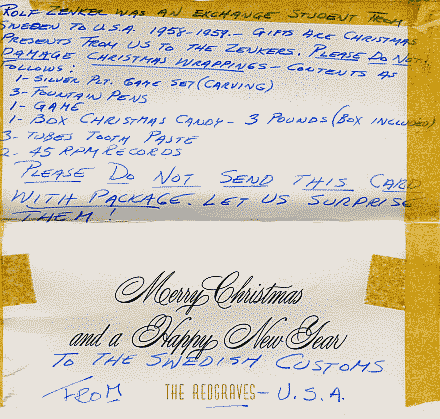 ROLF ZENKER WAS AN EXCHANGE STUDENT FROM
SWEDEN TO U.S.A. 1958-1959.- GIFTS ARE CHRISTMAS
PRESENTS FROM US TO THE ZENKERS. PLEASE DO NOT
DAMAGE CHRISTMAS WRAPPINGS - CONTENTS AS
FOLLOWS:
1- SILVER PLT. GAME SET (CARVING)
3- FOUNTAIN PENS
1- GAME
1- BOX CHRISTMAS CANDY - 3 POUNDS (BOX INCLUDED)
3- TUBES TOOTH PASTE
2- 45 RPM RECORDS
PLEASE DO NOT SEND THIS CARD
WITH PACKAGE. LET US SURPRISE
THEM!
Merry Christmas
and a Happy New Year
TO THE SWEDISH CUSTOMS
FROM THE REDGRAVES - U.S.A.